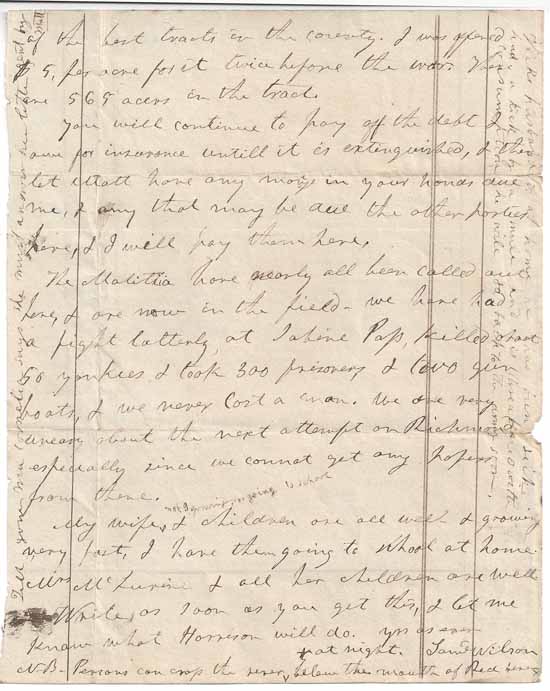 the best tracts in the county. I was offered
$5, per acre for it twice before the war. There
are 565 acers in the tract.
You will continue to pay off the debt I
owe for insurance untill it is extinguished, & then
let Matt have any monys in your hands due
me, & any that may be due the other parties
here, & I will pay them here,
The Malittia have nearly all been called out
here, & are now in the field - we have had
a fight latterly, at Sabine Pass, killed about
50 yankees & took 300 prisoners & two gun
boats, & we never lost a man. We are very
uneasy about the next attempt on Richmond
especially since we cannot get any papers
from there.
not grown going to school
My wife, & children are all well & growing
very fast, I have them going to school at home
Mrs & all her children are well
Write, as soon as you get this, & let me
know what Harrison will do. yrs as ever
at night. Saml Wilson
N-B- Persons can crop the river, below the mouth of Red River
Tell you ma she must answer her letter sent by